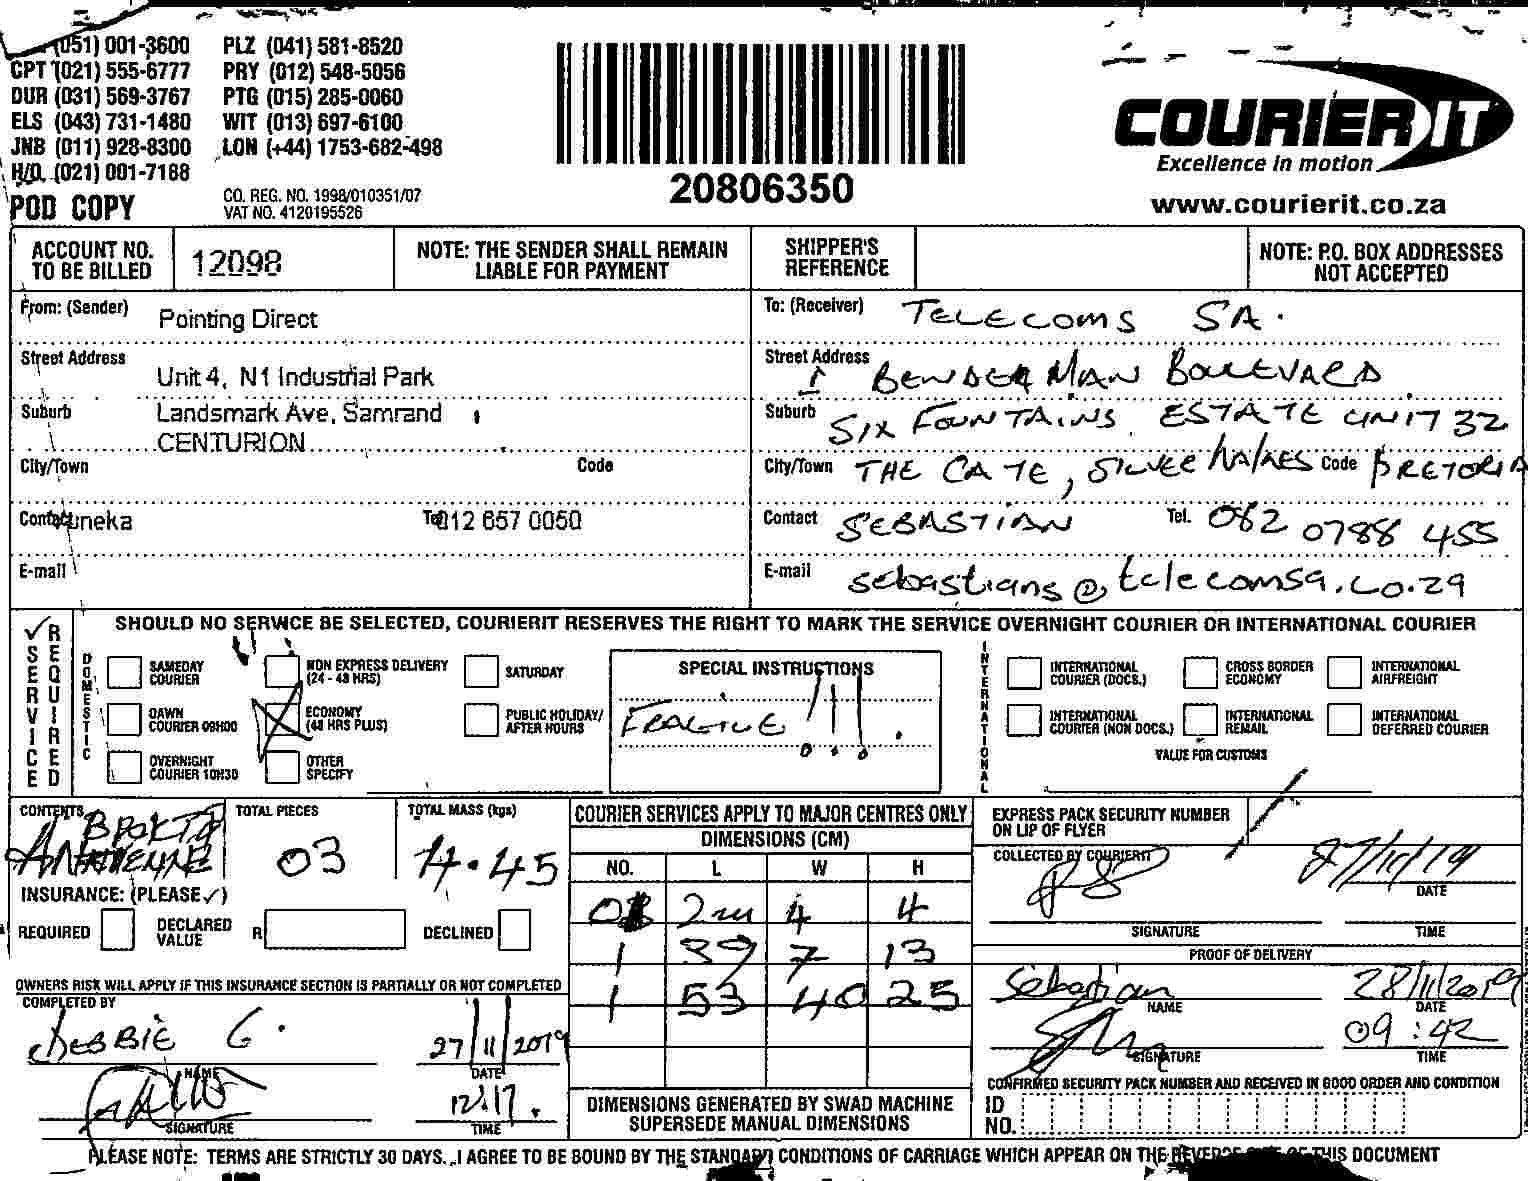 (051) 001-3600 PLZ (041) 581-8520
CPT (021) 555-6777 PRY (012) 548-5056
DUR (031) 569-3767 PTG (015) 285-0060
ELS (043) 731-1480 WIT (013) 697-6100
JNB (011) 928-8300 LON (+44) 1753-682-498
H/O. (021) 001-7188
POD COPY
CO. REG. NO. 1998/010351/07
VAT NO. 4120195526
20806350
COURIER IT
Excellence in motion
www.courierit.co.za
ACCOUNT NO. TO BE BILLED 12098
NOTE: THE SENDER SHALL REMAIN LIABLE FOR PAYMENT
SHIPPER'S REFERENCE
NOTE: P.O. BOX ADDRESSES NOT ACCEPTED
From: (Sender) Pointing Direct
Street Address Unit 4, N1 Industrial Park
Suburb Landsmark Ave, Samrand
CENTURION
City/Town Code
Contact uneka Tel 012 657 0050
E-mail
To: (Receiver) TELECOMS SA.
Street Address 1 BENDEMAN BOULEVARD
Suburb SIX FOUNTAINS ESTATE UNIT 32
City/Town THE GATE, SILVER LAKES Code PRETORIA
Contact SEBASTIAN Tel. 082 0788 455
E-mail sebastians@telecomsa.co.za
SERVICE REQUIRED
SHOULD NO SERVICE BE SELECTED, COURIERIT RESERVES THE RIGHT TO MARK THE SERVICE OVERNIGHT COURIER OR INTERNATIONAL COURIER
DOMESTIC
SAMEDAY COURIER
NON EXPRESS DELIVERY (24 - 48 HRS)
SATURDAY
DAWN COURIER 09H00
ECONOMY (48 HRS PLUS)
PUBLIC HOLIDAY/ AFTER HOURS
OVERNIGHT COURIER 10H30
OTHER SPECIFY
SPECIAL INSTRUCTIONS
FRAGILE !!!.
INTERNATIONAL
INTERNATIONAL COURIER (DOCS.)
CROSS BORDER ECONOMY
INTERNATIONAL AIRFREIGHT
INTERNATIONAL COURIER (NON DOCS.)
INTERNATIONAL REMAIL
INTERNATIONAL DEFERRED COURIER
VALUE FOR CUSTOMS
CONTENTS
TOTAL PIECES 03
TOTAL MASS (kgs) 4.45
INSURANCE: (PLEASE ✓)
REQUIRED DECLARED VALUE R DECLINED
OWNERS RISK WILL APPLY IF THIS INSURANCE SECTION IS PARTIALLY OR NOT COMPLETED
COMPLETED BY
DEBBIE G. 27/11/2019
NAME DATE
12:17.
SIGNATURE TIME
COURIER SERVICES APPLY TO MAJOR CENTRES ONLY
DIMENSIONS (CM)
NO. L W H
2m 4 4
1 39 7 13
1 53 40 25
DIMENSIONS GENERATED BY SWAD MACHINE SUPERSEDE MANUAL DIMENSIONS
EXPRESS PACK SECURITY NUMBER ON LIP OF FLYER
COLLECTED BY COURIERIT
27/11/19
DATE
SIGNATURE TIME
PROOF OF DELIVERY
Sebastian 28/11/2019
NAME DATE
09:42
SIGNATURE TIME
CONFIRMED SECURITY PACK NUMBER AND RECEIVED IN GOOD ORDER AND CONDITION
ID NO.
PLEASE NOTE: TERMS ARE STRICTLY 30 DAYS. I AGREE TO BE BOUND BY THE STANDARD CONDITIONS OF CARRIAGE WHICH APPEAR ON THE REVERSE SIDE OF THIS DOCUMENT